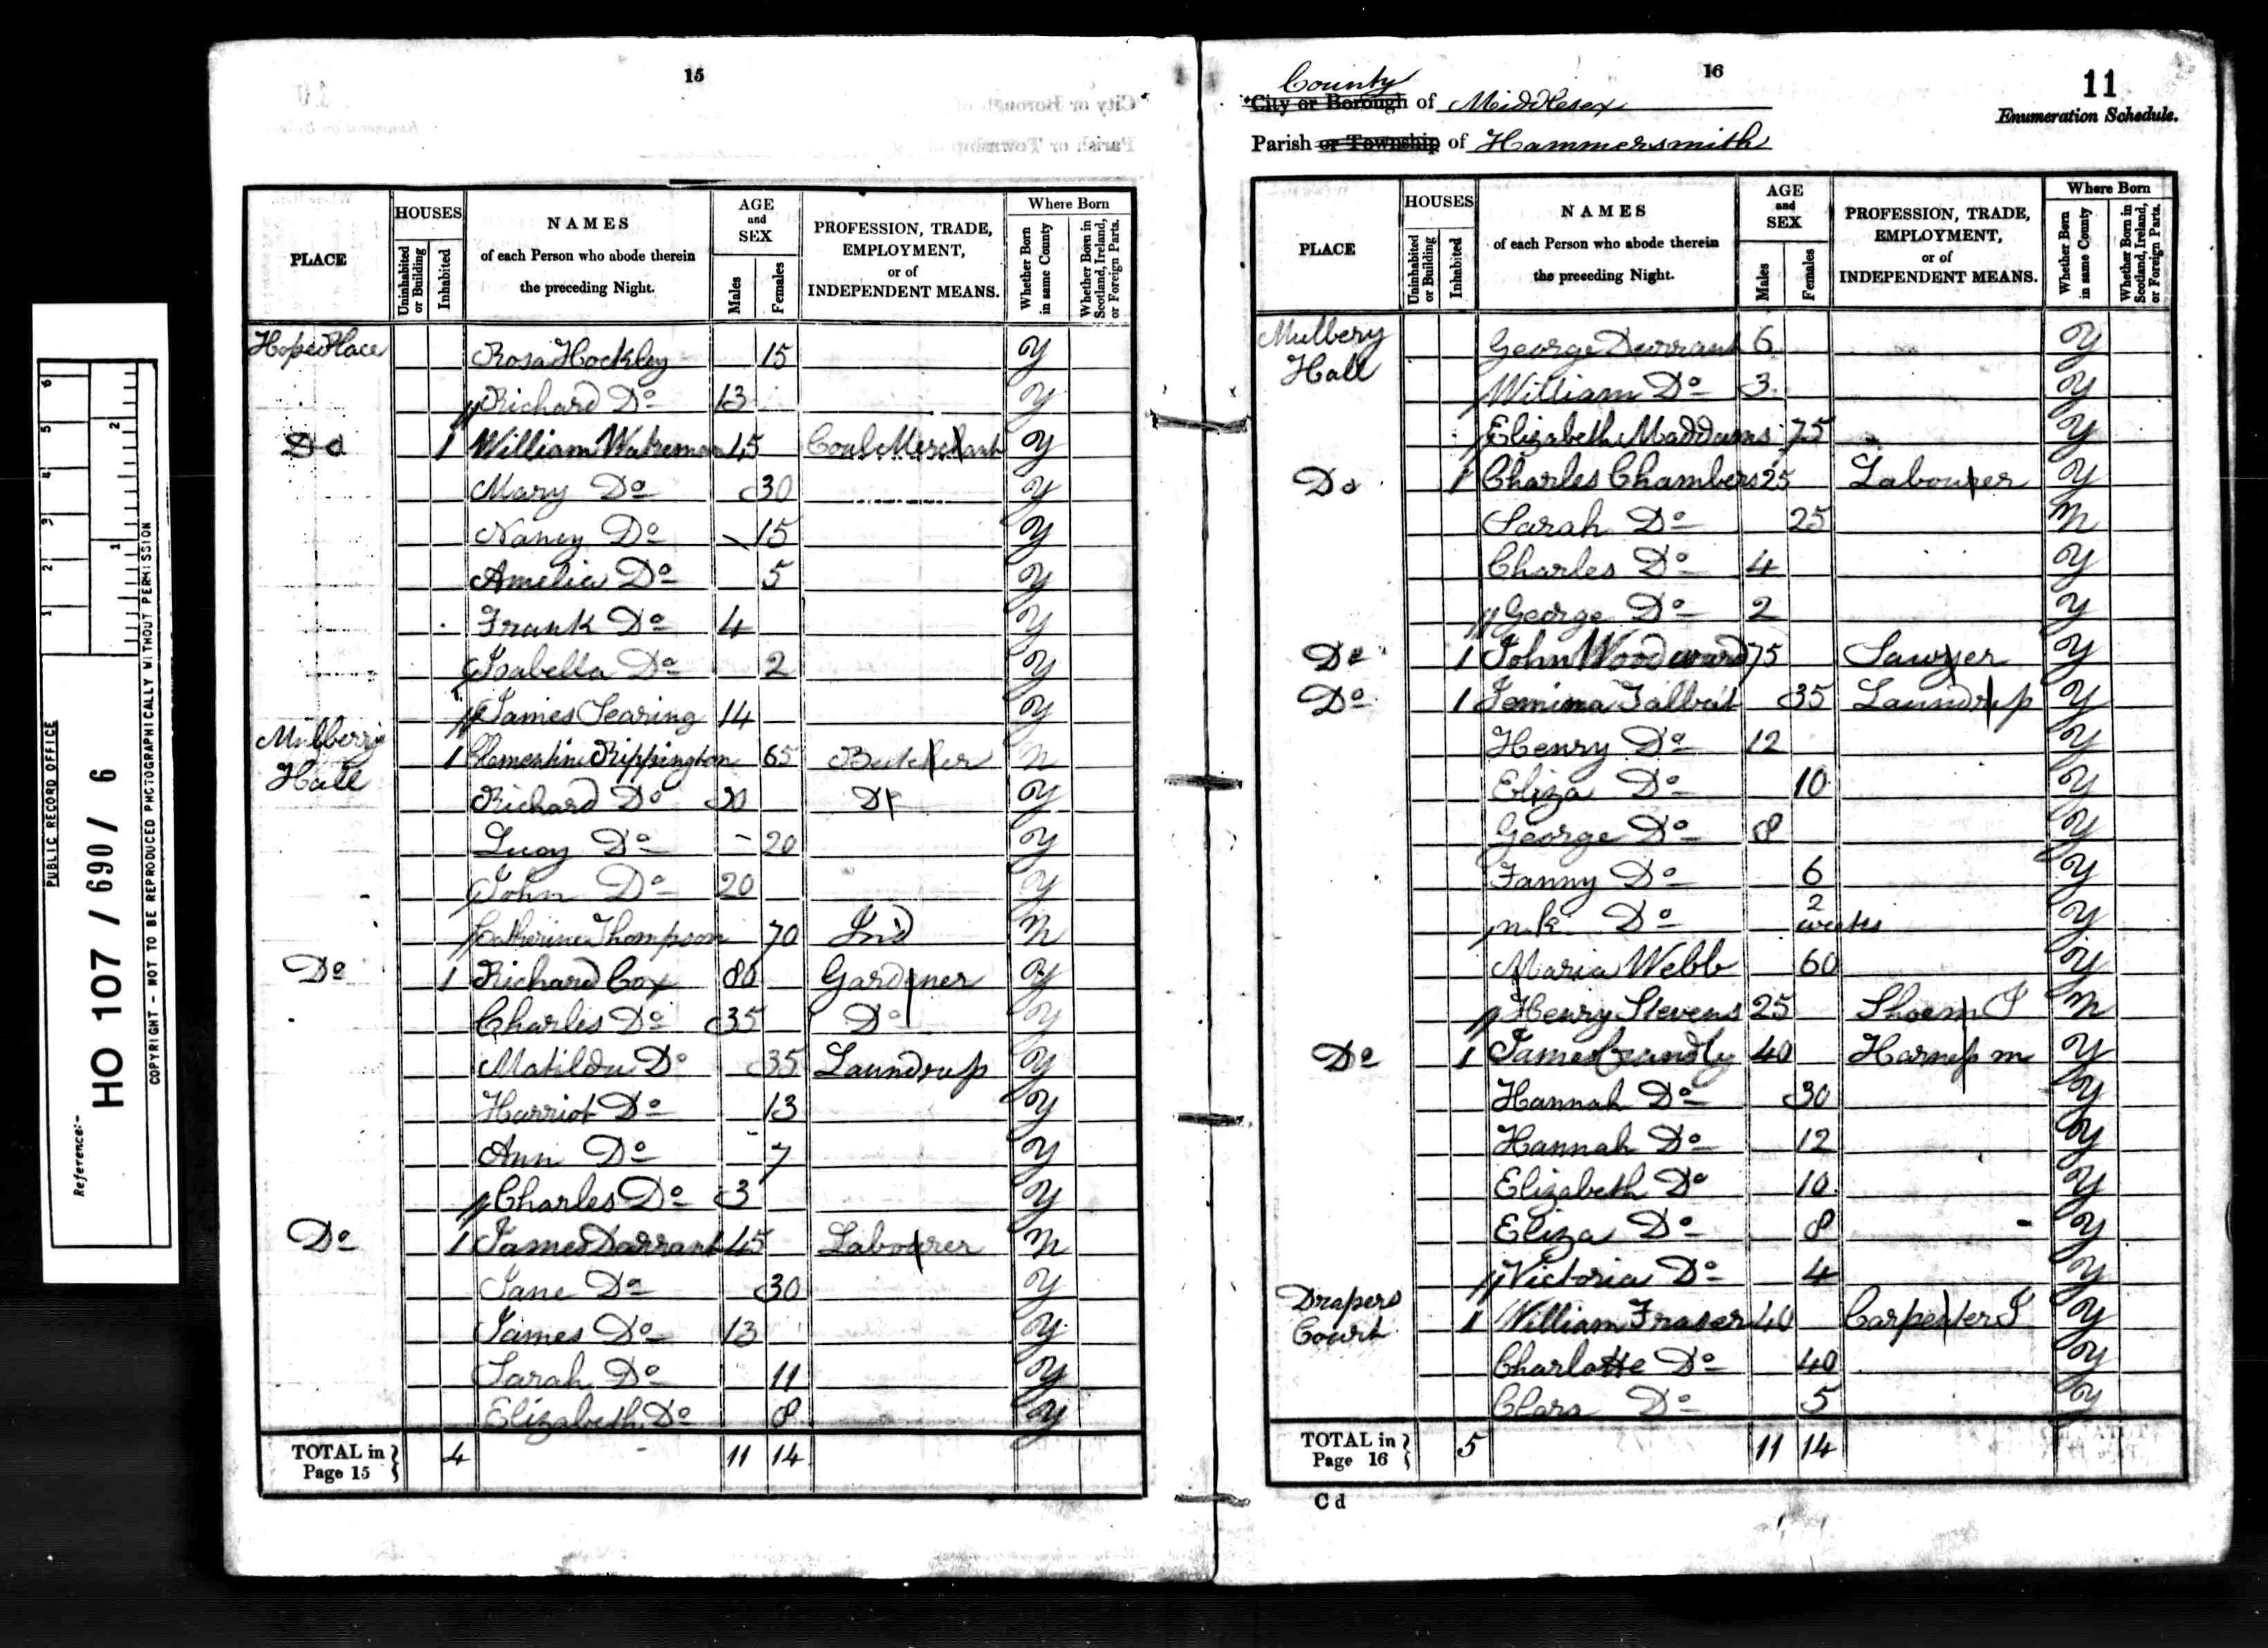 PUBLIC RECORD OFFICE
1 2 3 4 5 6
1 2
Reference:-
HO 107 / 690 / 6
COPYRIGHT - NOT TO BE REPRODUCED PHOTOGRAPHICALLY WITHOUT PERMISSION
15
PLACE
HOUSES
Uninhabited or Building
Inhabited
NAMES
of each Person who abode therein
the preceding Night.
AGE and SEX
Males
Females
PROFESSION, TRADE, EMPLOYMENT, or of INDEPENDENT MEANS.
Where Born
Whether Born in same County
Whether Born in Scotland, Ireland, or Foreign Parts.
Hope Place Rosa Hockley 15 Y
Richard Do 13 Y
Do 1 William Wakeman 45 Coal Merchant Y
Mary Do 30 Y
Nancy Do 15 Y
Amelia Do 5 Y
Frank Do 4 Y
Isabella Do 2 Y
James Searing 14 Y
Mulberry Hall 1 Clementine Rippington 65 Butcher N
Richard Do 20 Do Y
Lucy Do 20 Y
John Do 20 Y
Catherine Thompson 70 Ind N
Do 1 Richard Cox 80 Gardener Y
Charles Do 35 Do Y
Matilda Do 35 Laundress Y
Harriot Do 13 Y
Ann Do 7 Y
Charles Do 3 Y
Do 1 James Darrant 45 Labourer N
Jane Do 30 Y
James Do 13 Y
Sarah Do 11 Y
Elizabeth Do 8 Y
TOTAL in Page 15 } 4 11 14
16
11
Enumeration Schedule.
County
City or Borough of Middlesex
Parish or Township of Hammersmith
PLACE
HOUSES
Uninhabited or Building
Inhabited
NAMES
of each Person who abode therein
the preceding Night.
AGE and SEX
Males
Females
PROFESSION, TRADE, EMPLOYMENT, or of INDEPENDENT MEANS.
Where Born
Whether Born in same County
Whether Born in Scotland, Ireland, or Foreign Parts.
Mulbery Hall George Durrant 6 Y
William Do 3 Y
Elizabeth Maddams 75 Y
Do 1 Charles Chambers 25 Labourer Y
Sarah Do 25 N
Charles Do 4 Y
George Do 2 Y
Do 1 John Woodward 75 Sawyer Y
Do 1 Jemima Talbut 35 Laundress Y
Henry Do 12 Y
Eliza Do 10 Y
George Do 8 Y
Fanny Do 6 Y
n.k. Do 2 weeks Y
Maria Webb 60 Y
Henry Stevens 25 Shoem J N
Do 1 James 40 Harness m Y
Hannah Do 30 Y
Hannah Do 12 Y
Elizabeth Do 10 Y
Eliza Do 8 Y
Victoria Do 4 Y
Drapers Court 1 William Fraser 40 Carpenter J Y
Charlotte Do 40 Y
Clara Do 5 Y
TOTAL in Page 16 } 5 11 14
C d